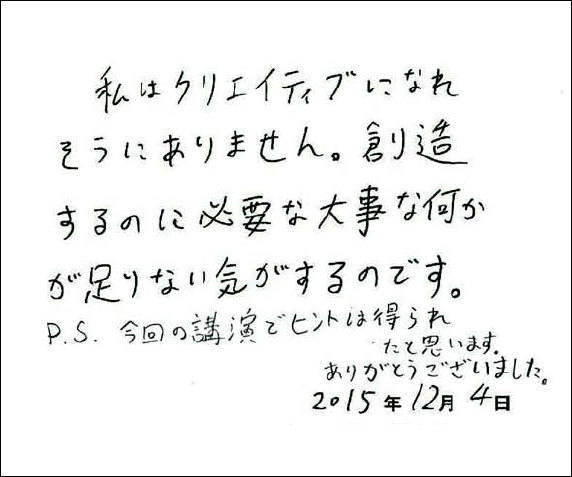 私はクリエイティブになれ
そうにありません。創造
するのに必要な大事な何か
が足りない気がするのです。
P.S. 今回の講演でヒントは得られ
たと思います。
ありがとうございました。
2015年12月4日